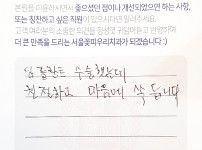 본원을 이용하시면서 좋으셨던 점이나 개선되었으면 하는 사항,
또는 칭찬하고 싶은 직원이 있으시다면 알려주세요.
고객 여러분의 소중한 의견을 정성껏 귀담아듣고 반영하여
더 큰 만족을 드리는 서울꽃피우리치과가 되겠습니다 :)
수술했는데
친절하고 마음에 쏙 듭니다